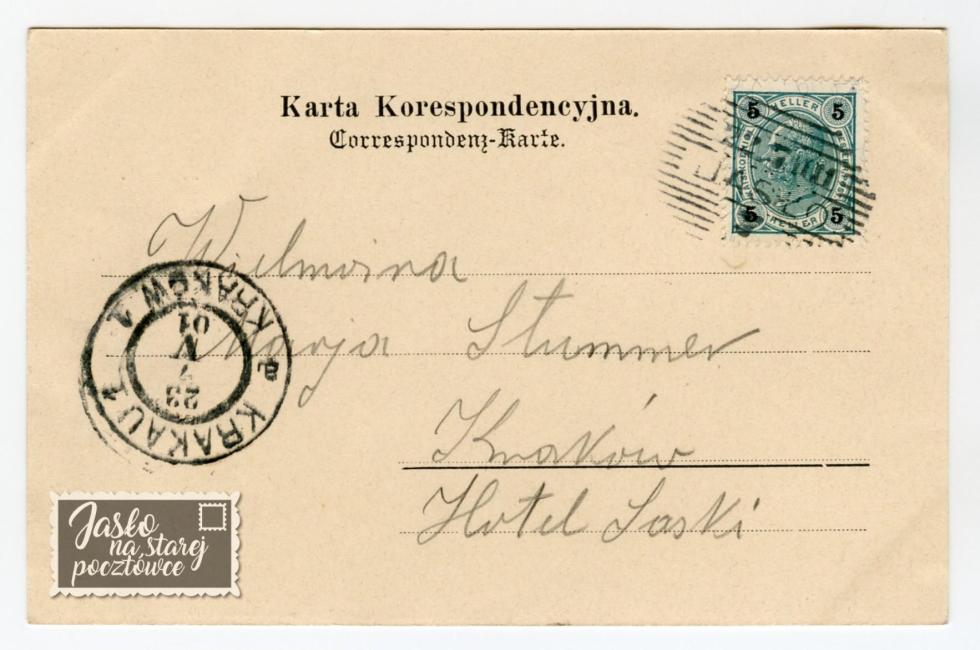 Karta Korespondencyjna.
Correspondenz-Karte.
5 HELLER 5
5 HELLER 5
JASŁO
Wielmożna
Marya Stummer
Kraków
Hotel Saski
KRAKÓW 1
23
IV
01
KRAKAU 1
Jasło
na starej
pocztówce